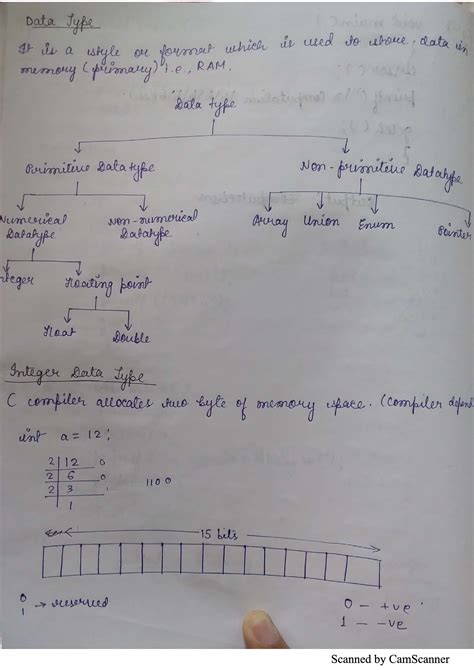 Data Type
It is a style or format which is used to store data in
memory (primary) i.e., RAM.
Data type
Primitive Datatype
Non-primitive Datatype
Numerical
Datatype
Non-numerical
Datatype
Array
Union
Enum
Pointer
nteger
floating point
float
Double
Integer Data Type
C compiler allocates two byte of memory space. (compiler depend
int a = 12;
2 12 0
2 6 0
2 3 1
1
1100
15 bits
0
1 → reserved
0 - +ve
1 - -ve
Scanned by CamScanner